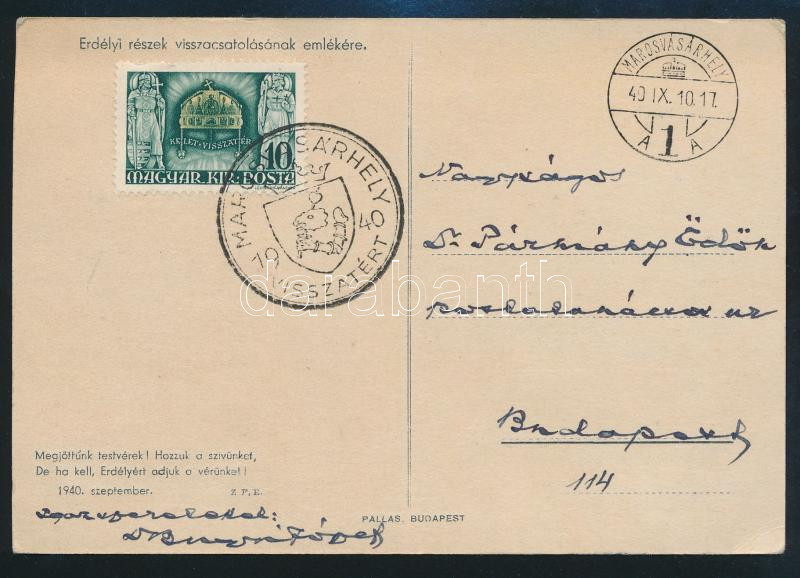 Erdélyi részek visszacsatolásának emlékére.
KELET VISSZATÉR
10
MAGYAR KIR. POSTA
MAROSVÁSÁRHELY
1940
VISSZATÉRT
MAROSVÁSÁRHELY
40 IX. 10. 17.
A 1 A
Nagyságos
Dr.
úr
Budapest
114
darabanth
Megjöttünk testvérek! Hozzuk a szivünket,
De ha kell, Erdélyért adjuk a vérünket!
1940. szeptember. Z P. E.
PALLAS, BUDAPEST